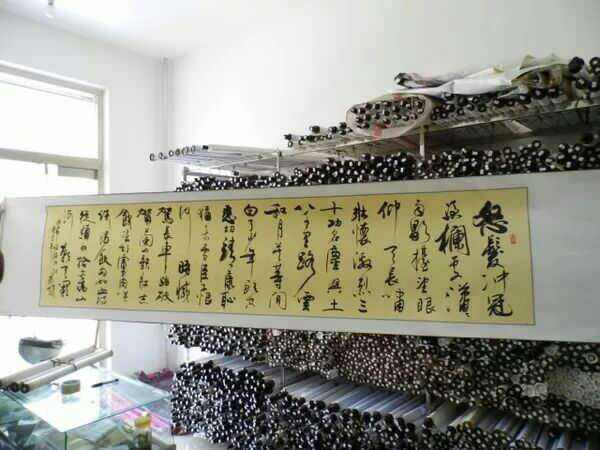 怒髮冲冠
凭欄處瀟瀟
雨歇抬望眼
仰天長嘯
壯懷激烈三
十功名塵與土
八千里路雲
和月莫等閒
白了少年頭空
悲切靖康恥
猶未雪臣子恨
何時滅
駕長車踏破
賀蘭山缺壯士
飢餐虜肉笑
談渴飲匈奴血待
從頭收拾舊山
河朝天闕